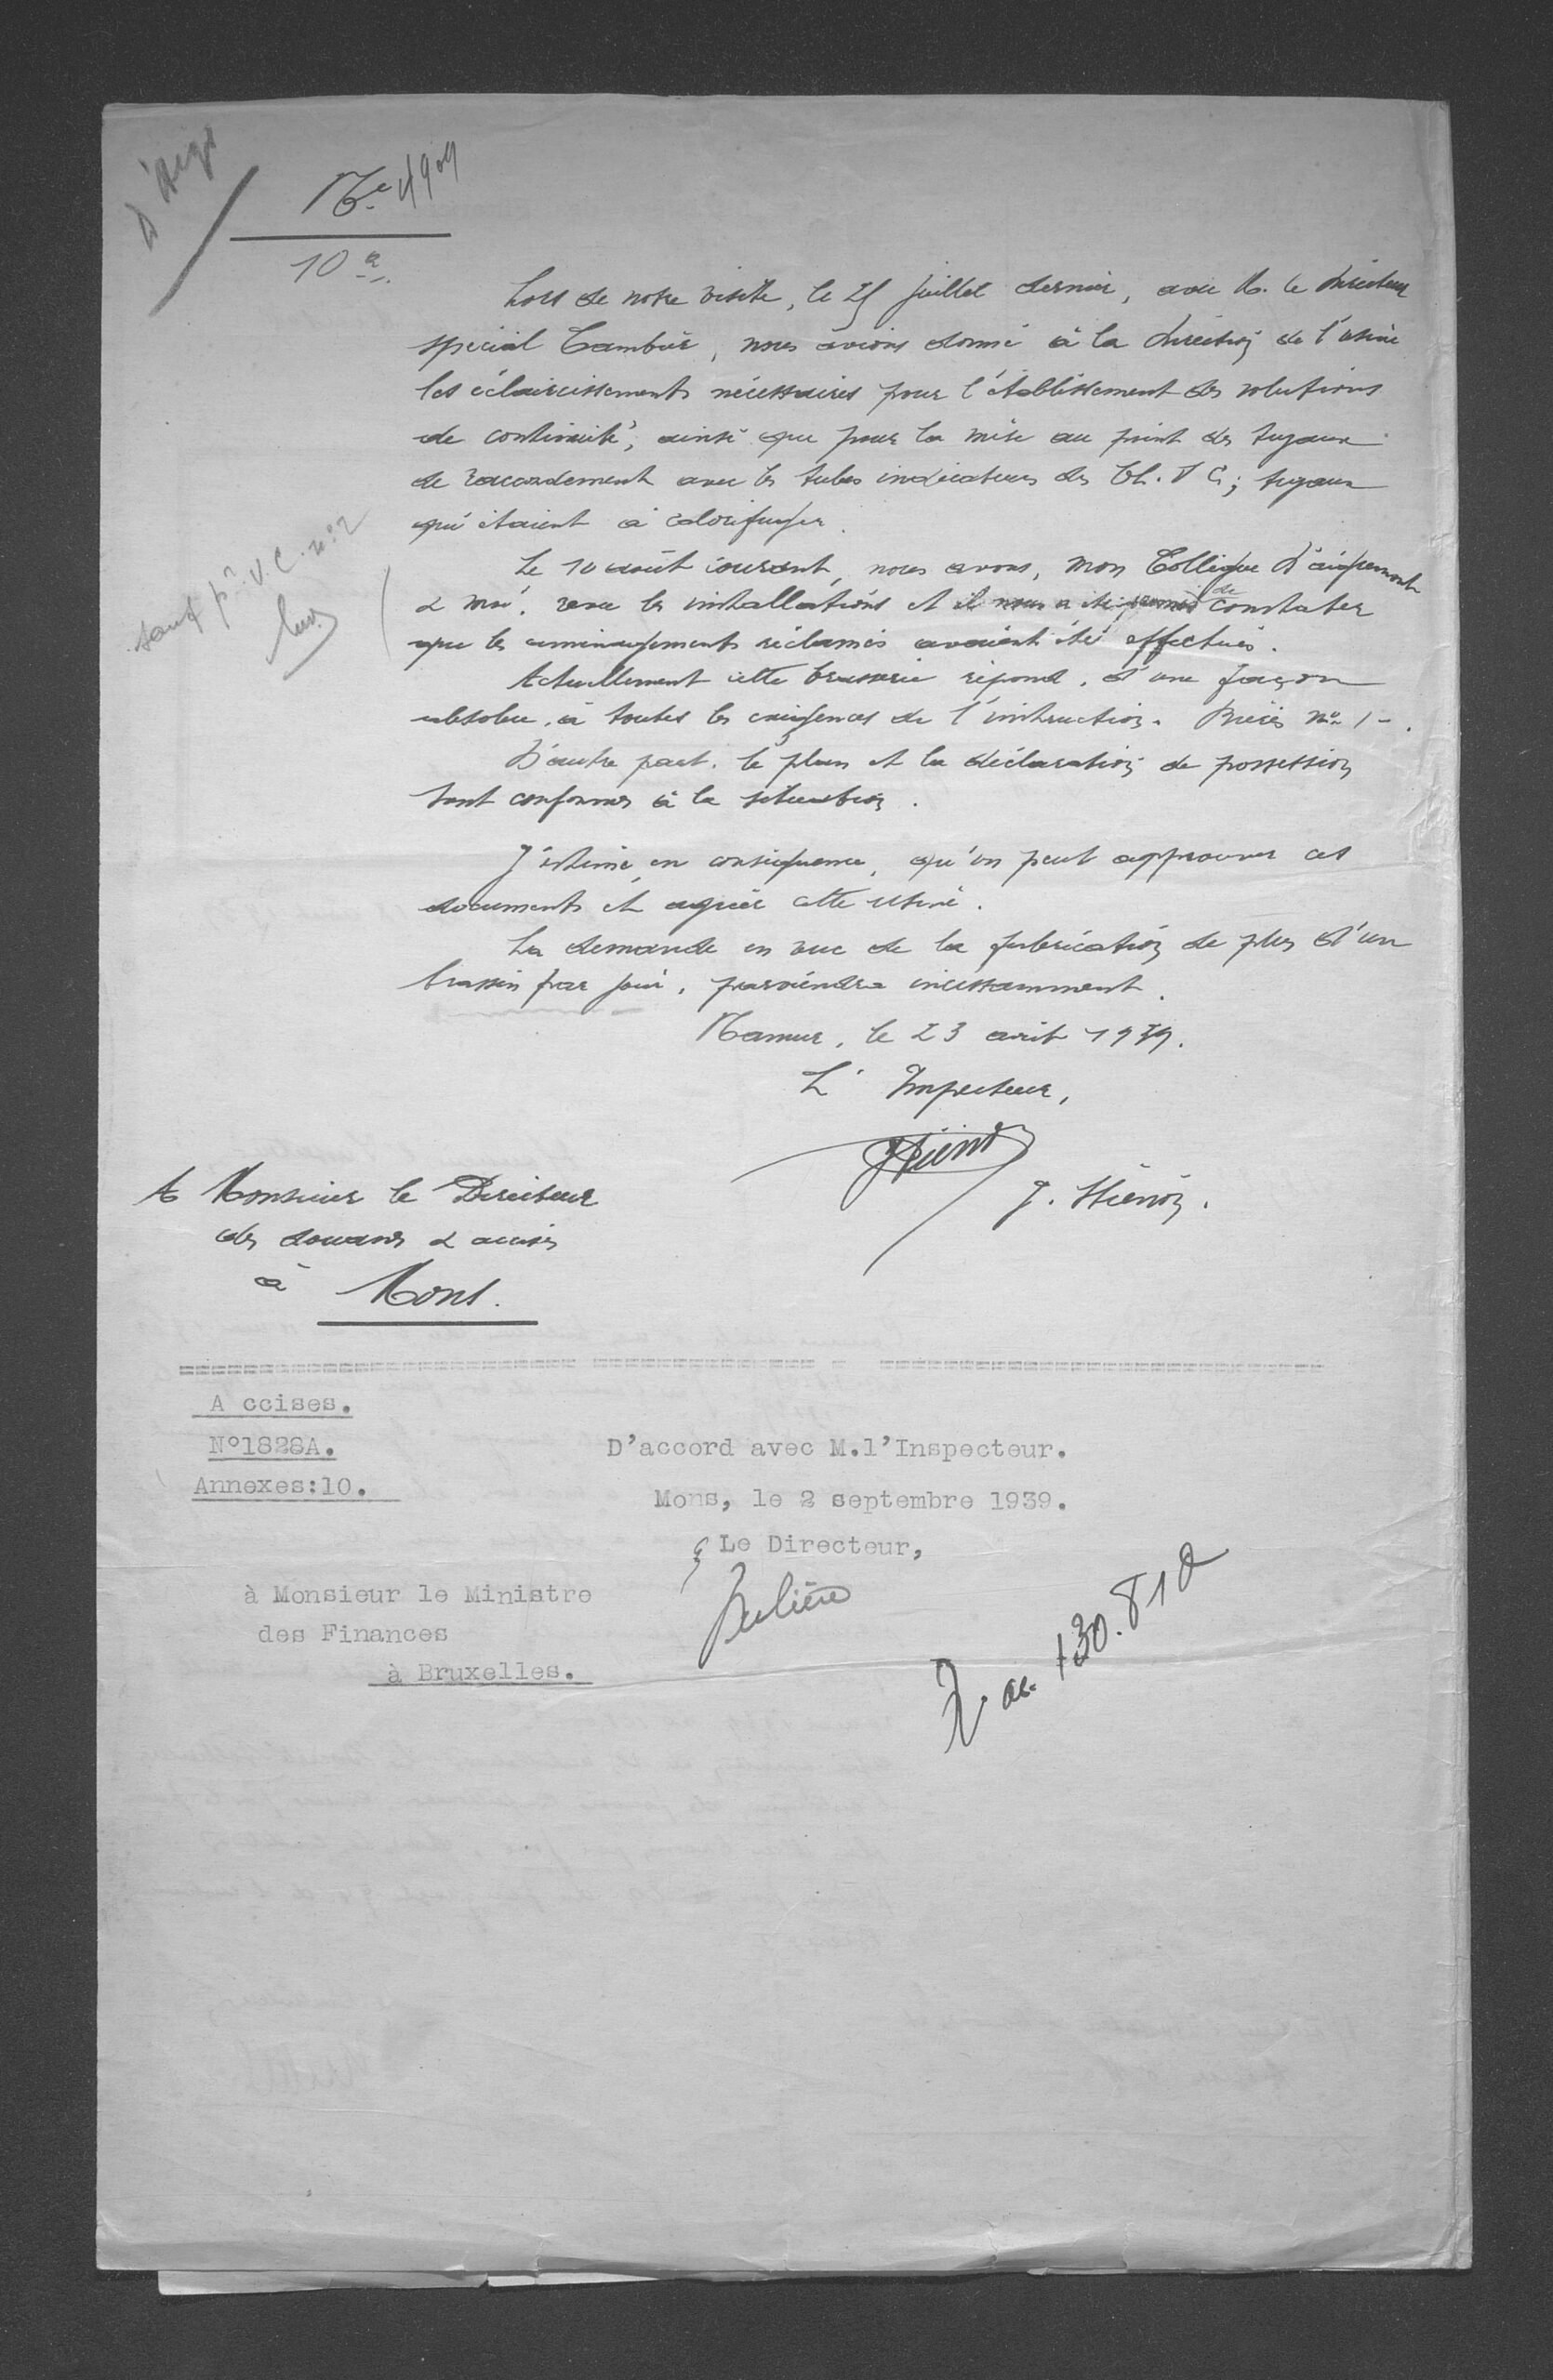 N° 4909
10 a.
Lors de notre visite, le 25 juillet dernier, avec M. le Directeur
spécial Cambier, nous avions donné à la direction de l'usine
les éclaircissements nécessaires pour l'établissement des solutions
de continuité, ainsi que pour la mise au point des tuyaux
de raccordement avec les tubes indicateurs des Ch. V C; tuyaux
qui étaient à calorifuger.
Le 10 août courant, nous avons, mon Collègue D'aigremont
& moi, revu les installations et de constater
que les aménagements réclamés avaient été effectués.
sauf pr. V.C. n° 2
Actuellement cette brasserie répond, d'une façon
absolue, à toutes les exigences de l'instruction. Bières n° 1-.
D'autre part, le plan et la déclaration de possession
sont conformes à la situation.
J'estime, en conséquence, qu'on peut approuver ces
documents et agréer cette usine.
La demande en vue de la fabrication de plus d'un
brassin par jour, parviendra incessamment.
Namur, le 23 août 1939.
L'Inspecteur,
J. Hiernon.
A Monsieur le Directeur
des douanes & accises
à Mons.
A ccises.
N°1828A.
Annexes:10.
D'accord avec M.l'Inspecteur.
Mons, le 2 septembre 1939.
Le Directeur,
à Monsieur le Ministre
des Finances
à Bruxelles.
ac. 130.810